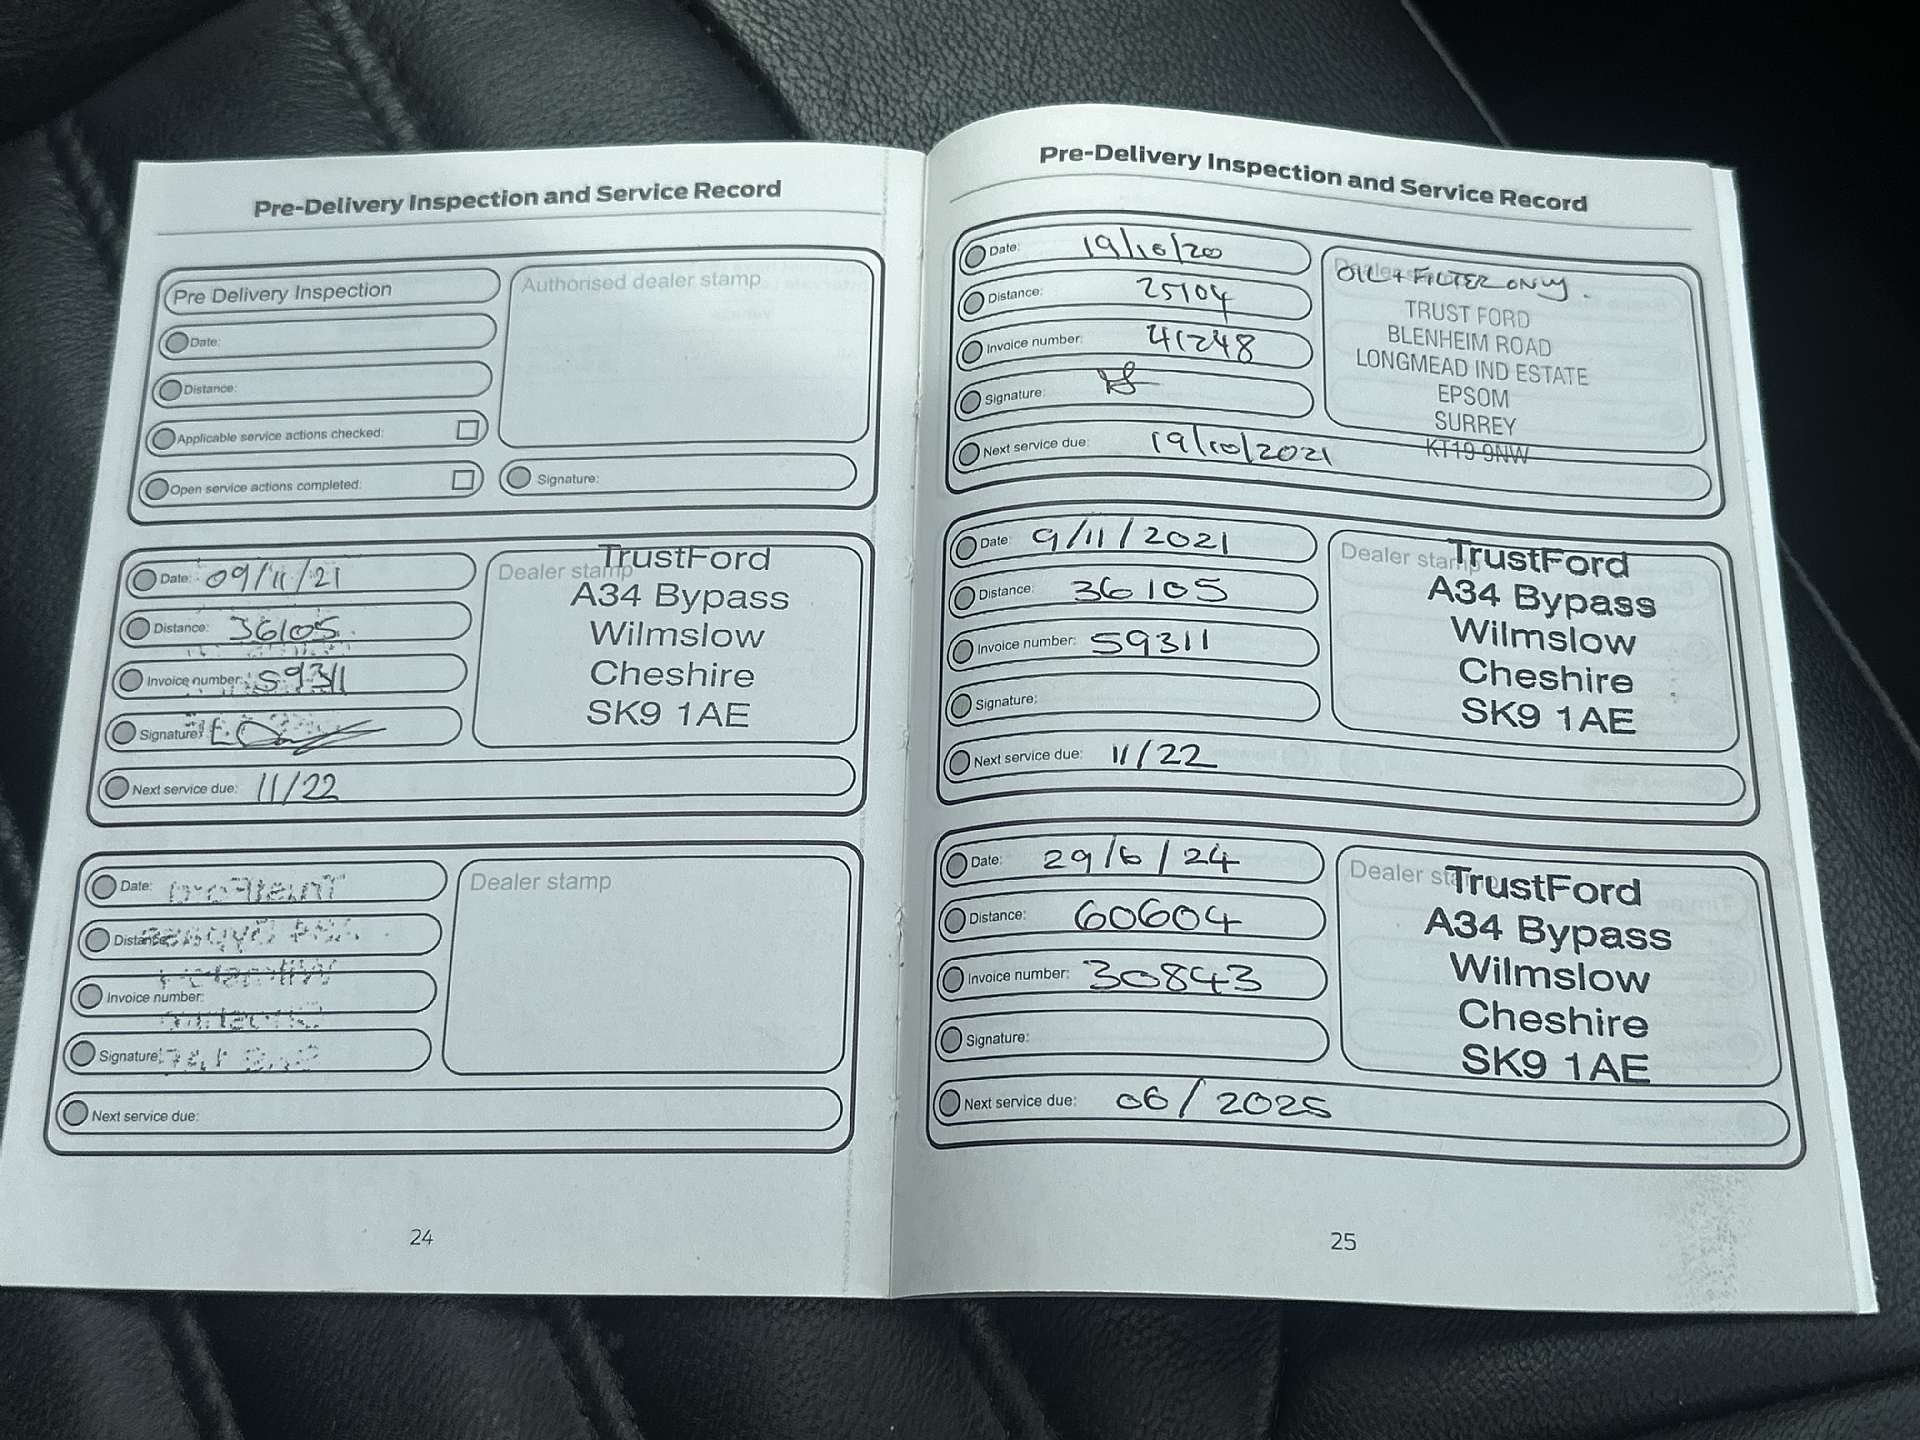 Pre-Delivery Inspection and Service Record
Pre Delivery Inspection
Authorised dealer stamp
Date:
Distance:
Applicable service actions checked:
Open service actions completed:
Signature:
Date: 09/11/21
Distance: 36105
Invoice number: 59311
Signature:
Next service due: 11/22
Dealer stamp
TrustFord
A34 Bypass
Wilmslow
Cheshire
SK9 1AE
Date:
Distance:
Invoice number:
Signature:
Next service due:
Dealer stamp
24
Pre-Delivery Inspection and Service Record
Date: 19/10/20
Distance: 25104
Invoice number: 41248
Signature:
Next service due: 19/10/2021
OIL + FILTER ONLY.
TRUST FORD
BLENHEIM ROAD
LONGMEAD IND ESTATE
EPSOM
SURREY
KT19 9NW
Date: 9/11/2021
Distance: 36105
Invoice number: 59311
Signature:
Next service due: 11/22
Dealer stamp
TrustFord
A34 Bypass
Wilmslow
Cheshire
SK9 1AE
Date: 29/6/24
Distance: 60604
Invoice number: 30843
Signature:
Next service due: 06/2025
Dealer stamp
TrustFord
A34 Bypass
Wilmslow
Cheshire
SK9 1AE
25